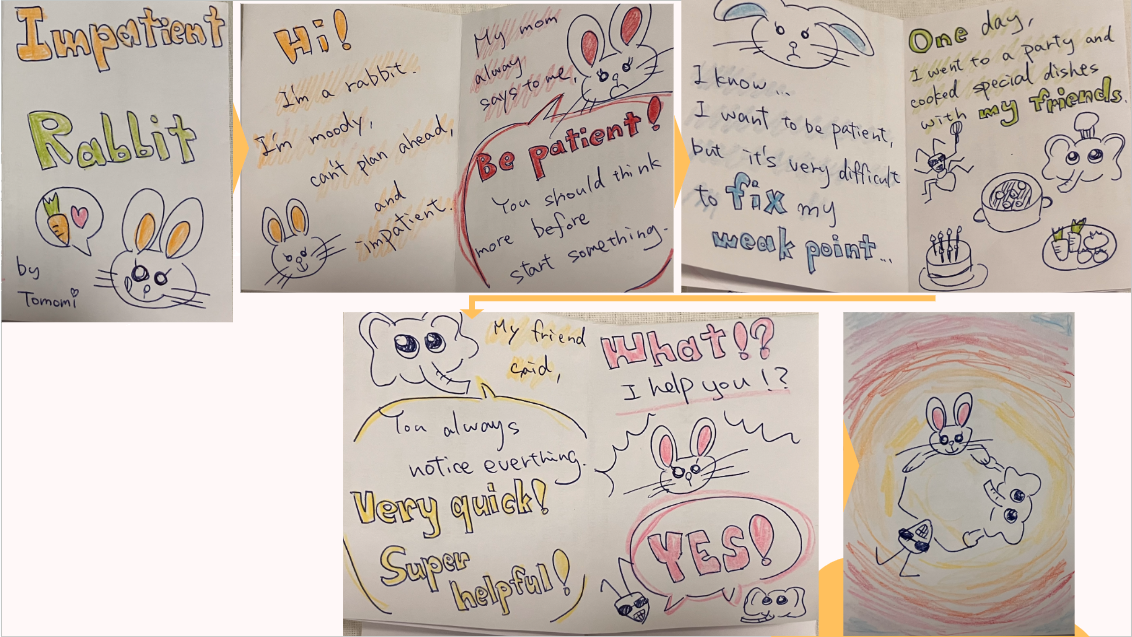 Impatient
Rabbit
by
Tomomi
Hi!
I'm a rabbit.
I'm moody,
can't plan ahead,
and
impatient.
My mom
always
says to me,
Be patient!
You should think
more before
start something.
I know...
I want to be patient,
but it's very difficult
to fix my
weak point...
One day,
I went to a party and
cooked special dishes
with my friends.
My friend
said,
You always
notice everthing.
Very quick!
Super
helpful!
What!?
I help you!?
YES!